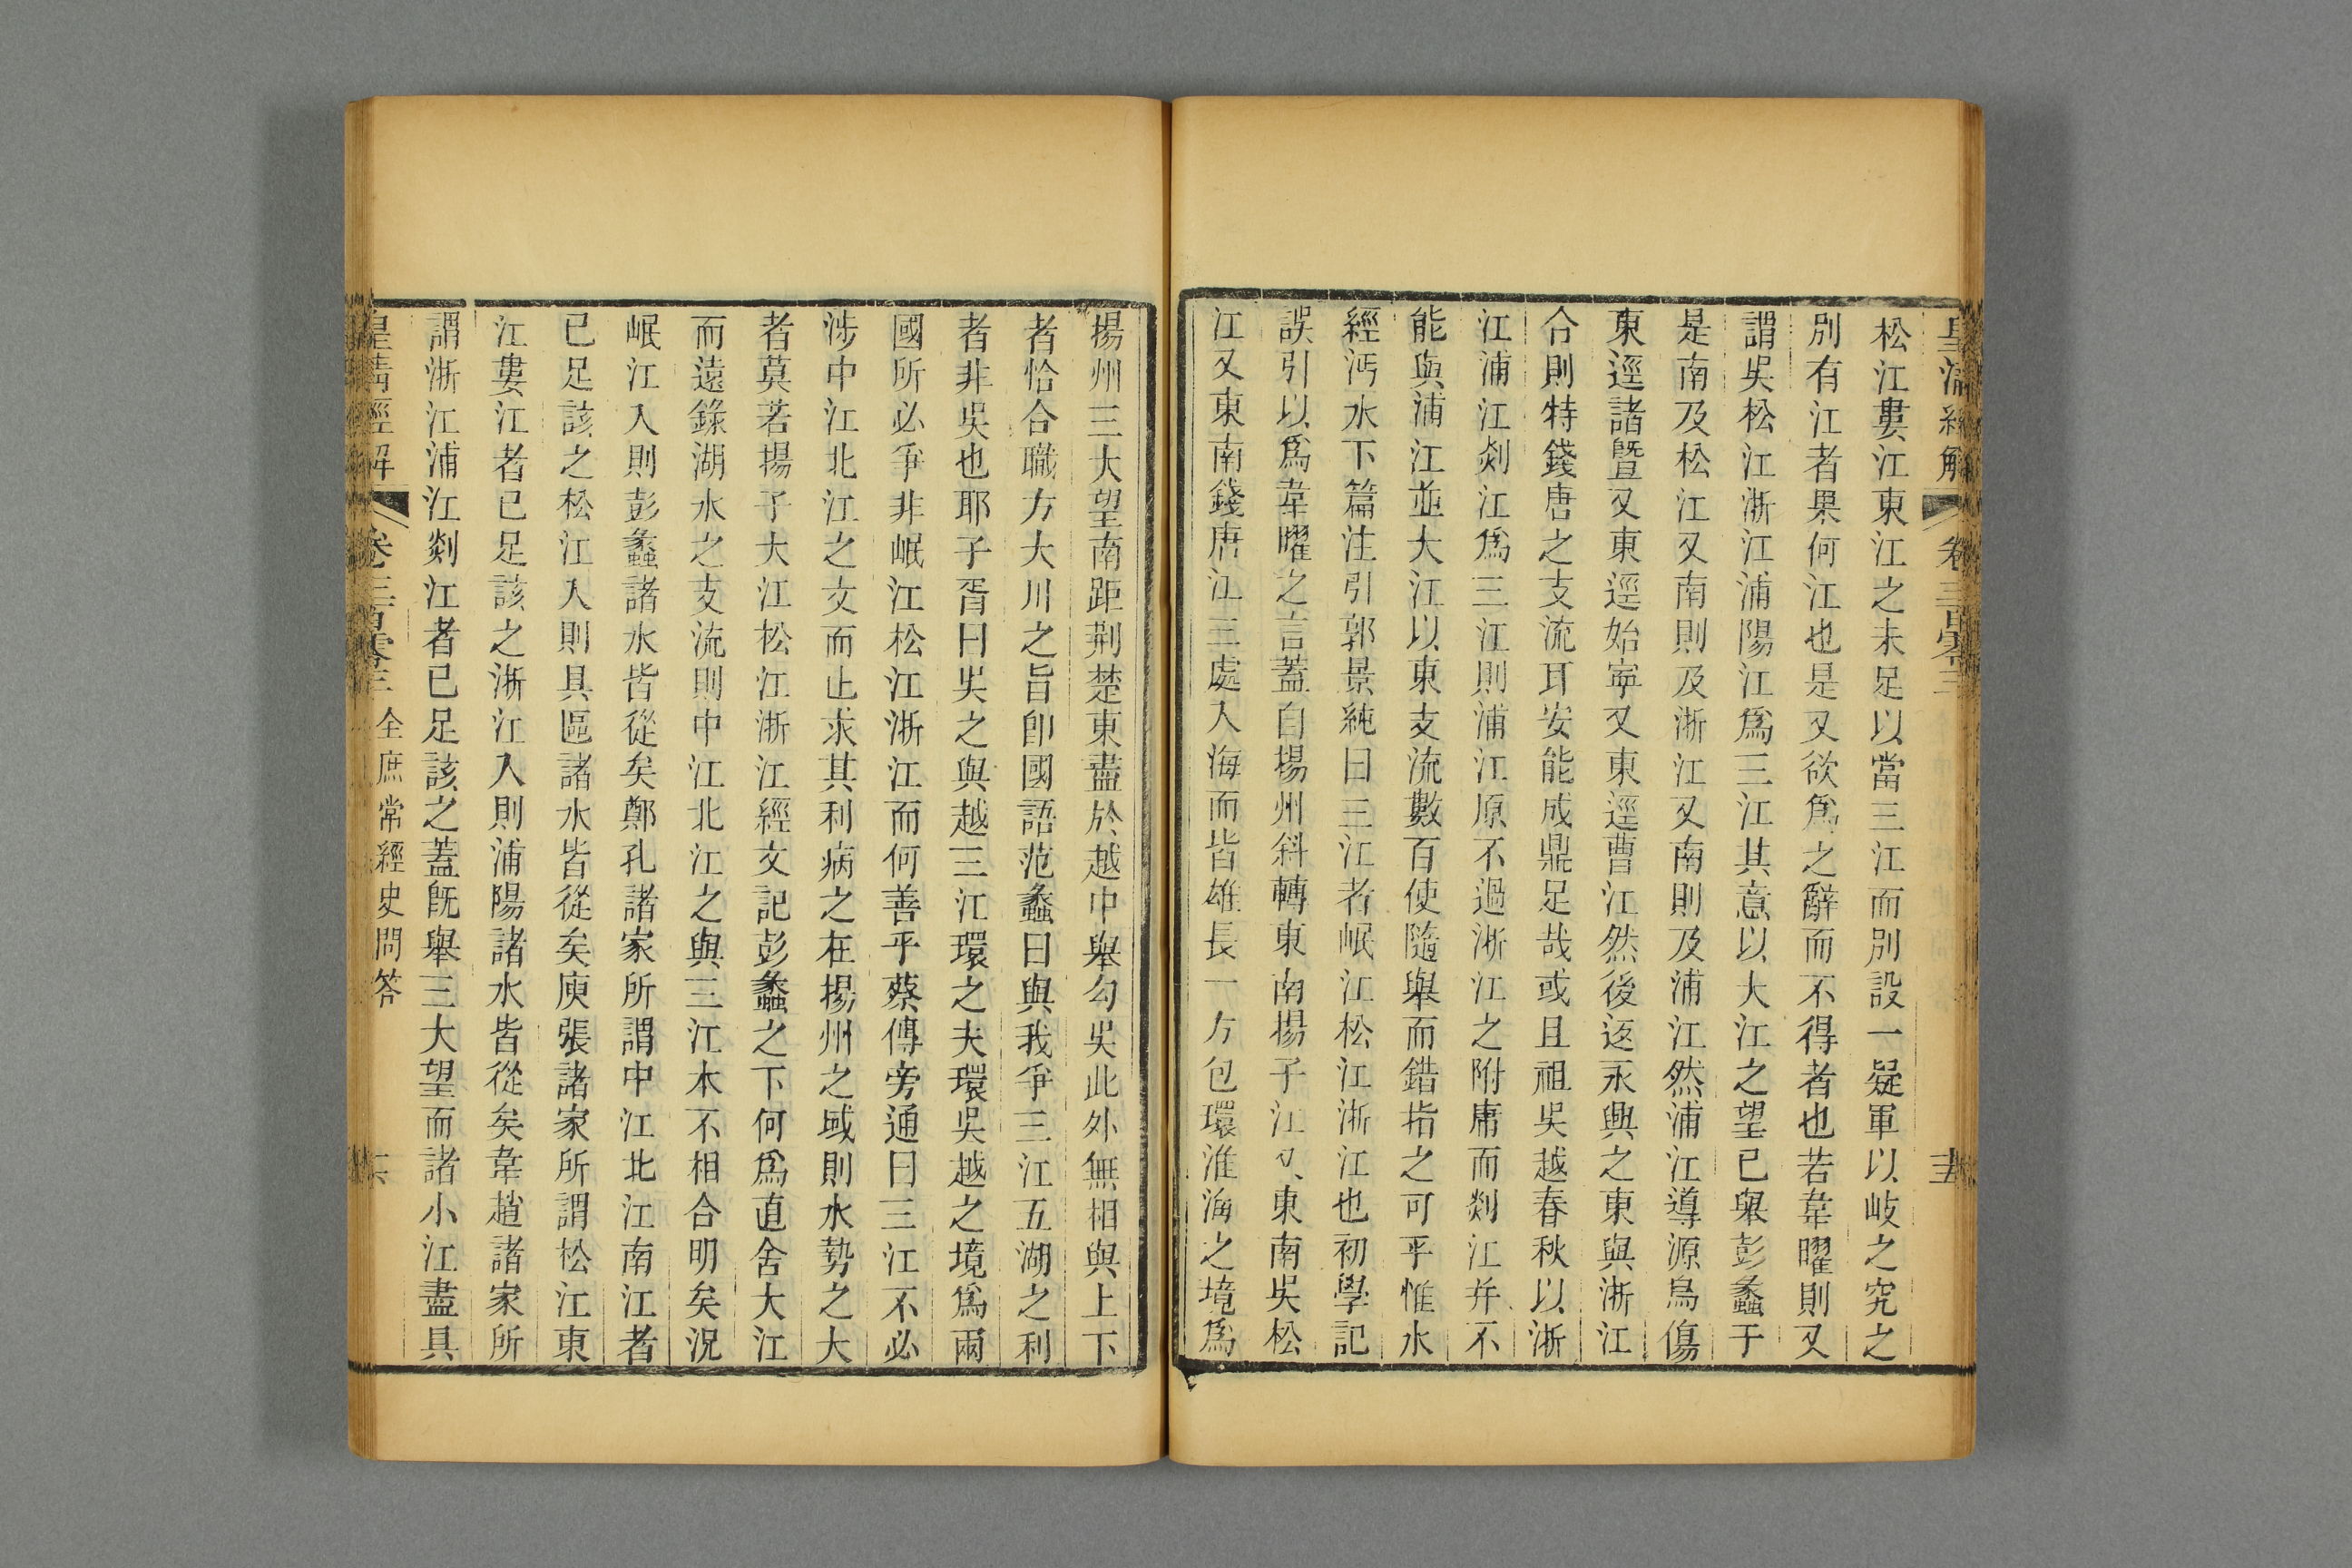 皇清經解 卷三百零三 十五
松江婁江東江之未足以當三江而別設一疑軍以岐之究之
別有江者果何江也是又欲爲之辭而不得者也若韋曜則又
謂吳松江浙江浦陽江爲三江其意以大江之望已舉彭蠡于
是南及松江又南則及浙江又南則及浦江然浦江導源烏傷
東逕諸暨又東逕始寧又東逕曹江然後返永興之東與浙江
合則特錢唐之支流耳安能成鼎足哉或且祖吳越春秋以浙
江浦江剡江爲三江則浦江原不過浙江之附庸而剡江并不
能與浦江並大江以東支流數百使隨舉而錯指之可乎惟水
經沔水下篇注引郭景純曰三江者岷江松江浙江也初學記
誤引以爲韋曜之言蓋自揚州斜轉東南揚子江又東南吳松
江又東南錢唐江三處入海而皆雄長一方包環淮海之境爲
揚州三大望南距荆楚東盡於越中舉勾吳此外無相與上下
者恰合職方大川之旨卽國語范蠡曰與我爭三江五湖之利
者非吳也耶子胥曰吳之與越三江環之夫環吳越之境爲兩
國所必爭非岷江松江浙江而何善乎蔡傳旁通曰三江不必
涉中江北江之文而止求其利病之在揚州之域則水勢之大
者莫若揚子大江松江浙江經文記彭蠡之下何爲直舍大江
而遠錄湖水之支流則中江北江之與三江本不相合明矣況
岷江入則彭蠡諸水皆從矣鄭孔諸家所謂中江北江南江者
已足該之松江入則具區諸水皆從矣庾張諸家所謂松江東
江婁江者已足該之浙江入則浦陽諸水皆從矣韋趙諸家所
謂浙江浦江剡江者已足該之蓋旣舉三大望而諸小江盡具
皇清經解 卷三百零三 全庶常經史問答 十六